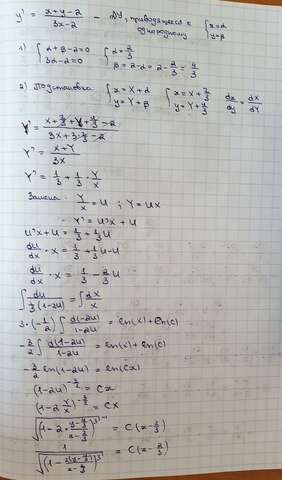 y' = (x+y-2)/(3x-2) – ДУ, приводящееся к однородному { x=α y=β
1) { α+β-2=0 3α-2=0 { α=2/3 β=2-α=2-2/3=4/3
2) Подстановка { x=X+α y=Y+β { x=X+2/3 y=Y+4/3 dx/dy = dX/dY
Y' = (X+2/3+Y+4/3-2)/(3X+3·2/3-2)
Y' = (X+Y)/(3X)
Y' = 1/3 + 1/3 · Y/X
Замена Y/X = U ; Y=UX
Y' = U'X+U
U'X+U = 1/3 + 1/3 U
dU/dX · X = 1/3 + 1/3 U - U
dU/dX · X = 1/3 - 2/3 U
∫ dU/(1/3(1-2U)) = ∫ dX/X
3·(-1/2) ∫ d(-2U)/(1-2U) = ln(X)+ln(C)
-3/2 ∫ d(1-2U)/(1-2U) = ln(X)+ln(C)
-3/2 ln(1-2U) = ln(CX)
(1-2U)^(-3/2) = CX
(1-2 Y/X)^(-3/2) = CX
= C(x-2/3)
1/√((1-2(y-4/3)/(x-2/3))³) = C(x-2/3)